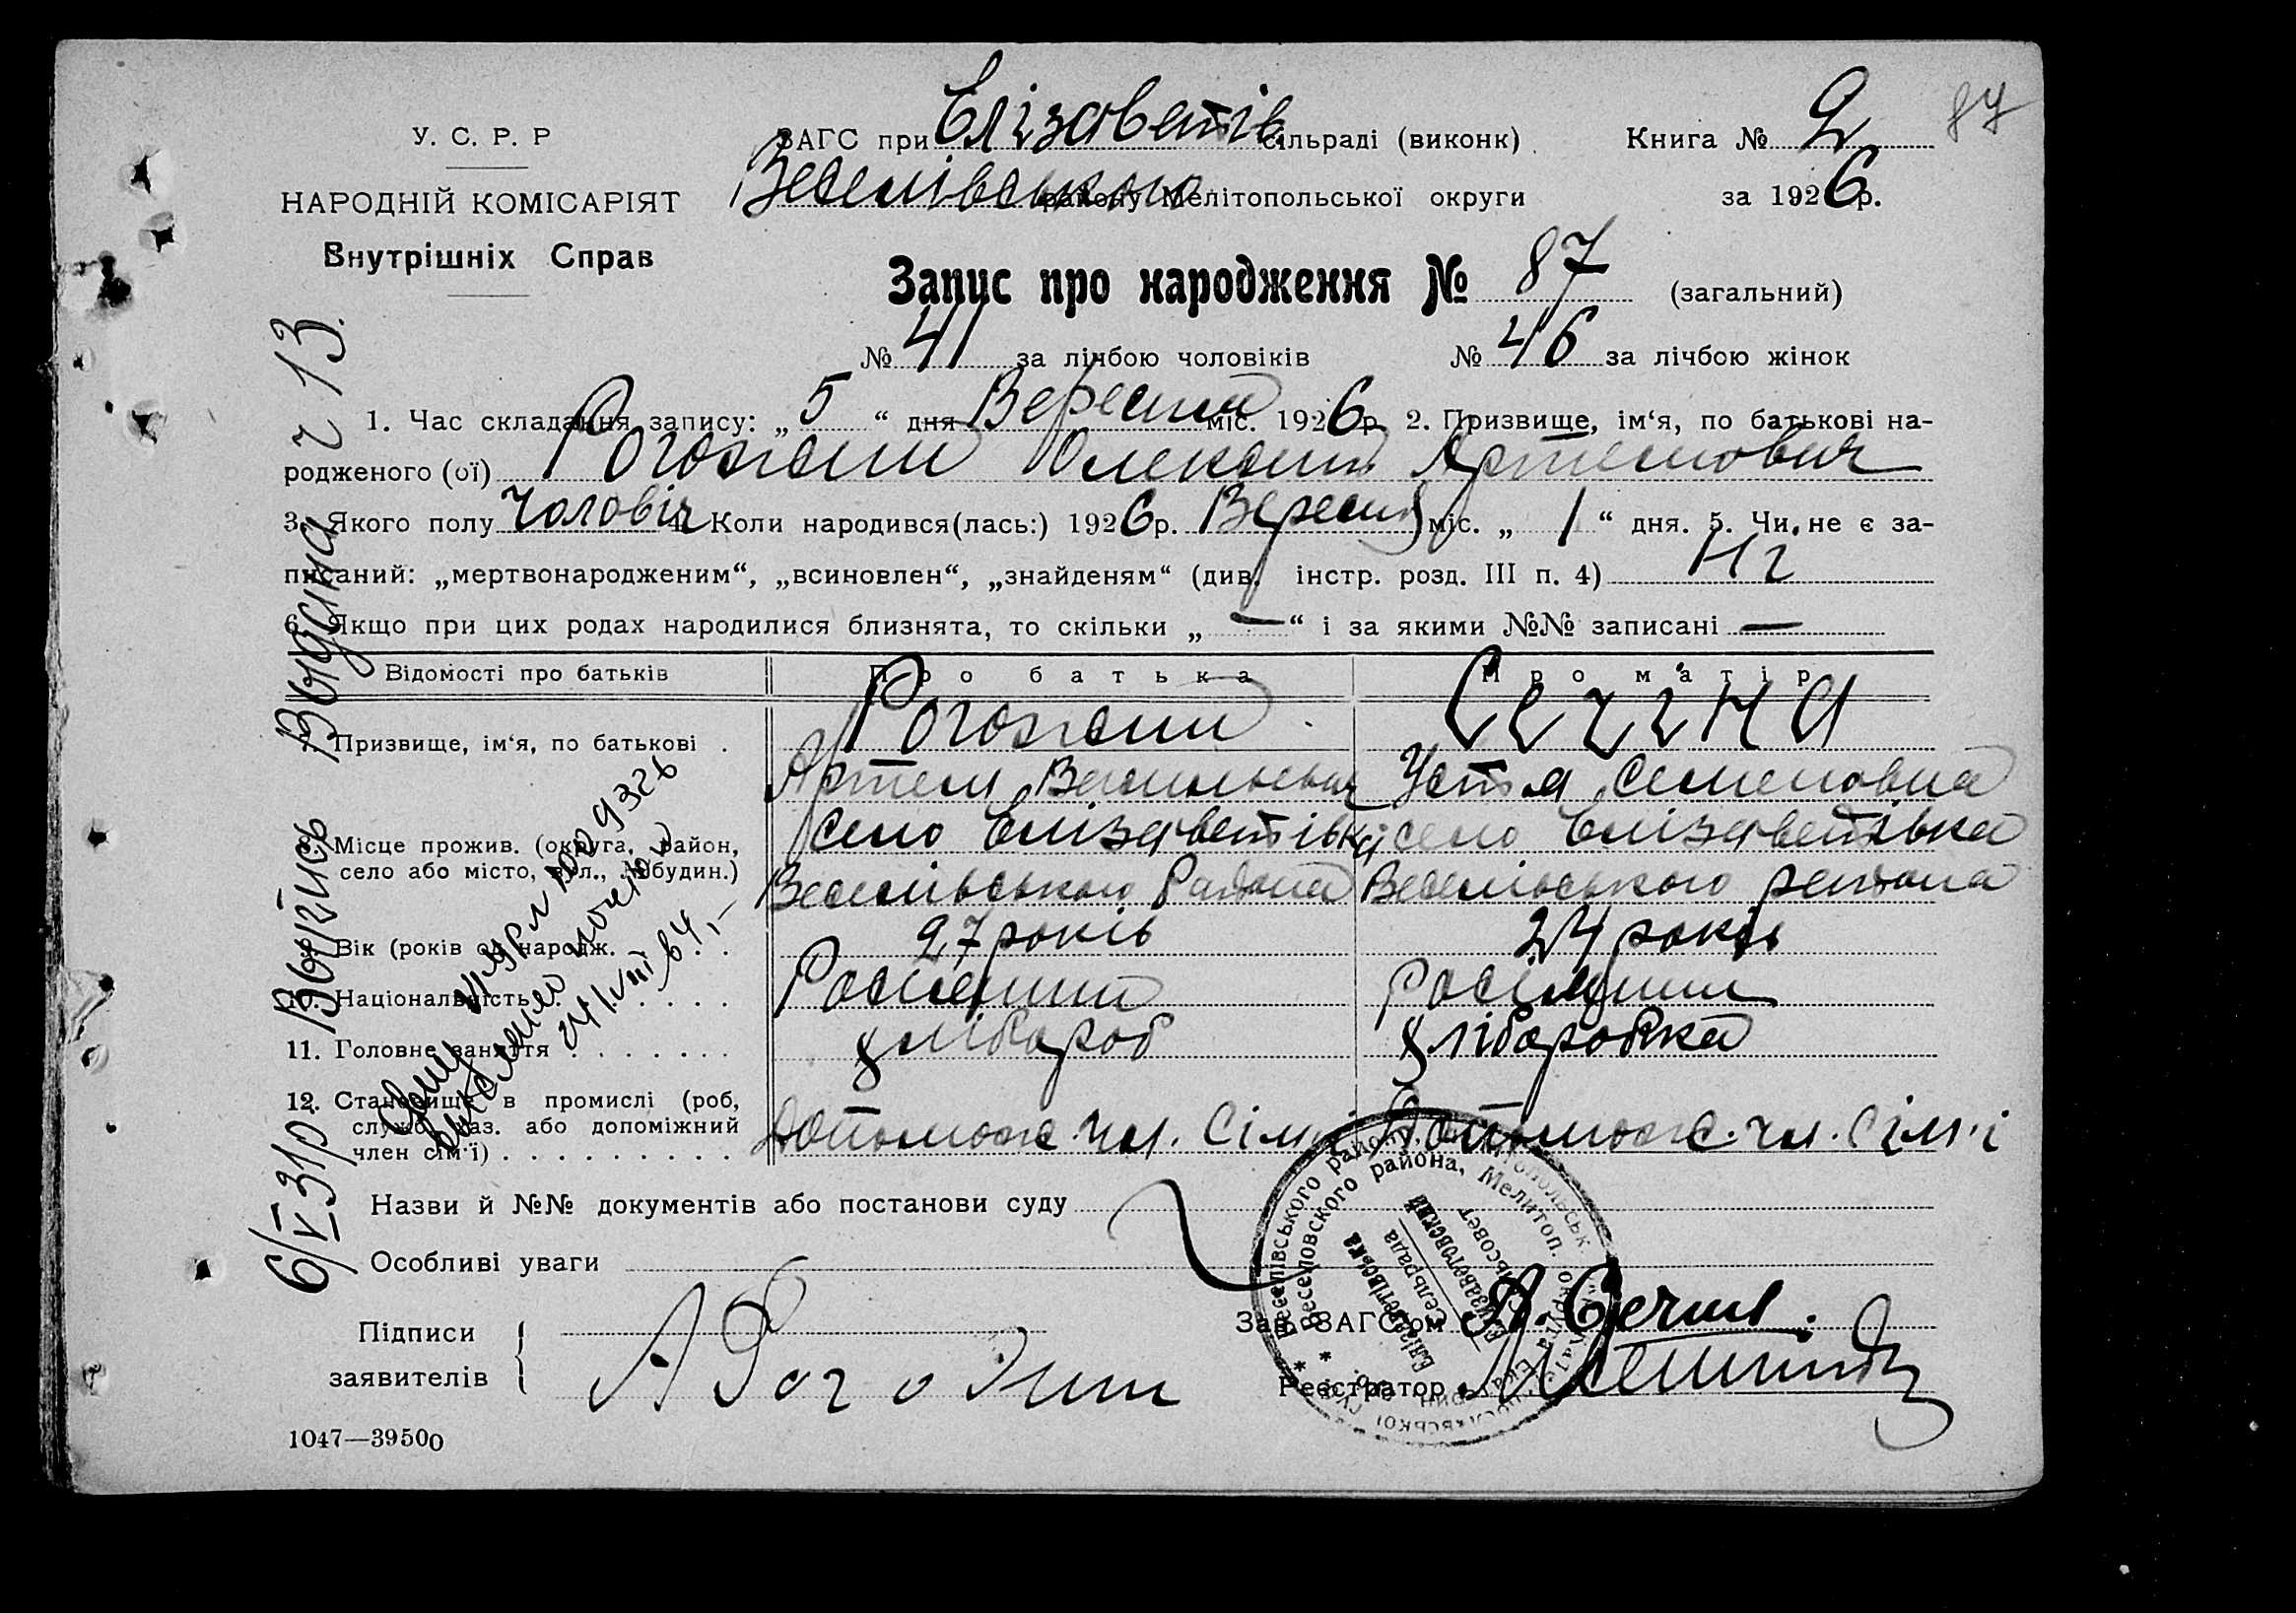 87
У. С. Р. Р
НАРОДНІЙ КОМІСАРІЯТ
Внутрішніх Справ
ЗАГС при Єлізаветів сільраді (виконк)
Веселівського району Мелітопольської округи
Книга № 2
за 1926р.
Запис про народження № 87 (загальний)
№ 41 за лічбою чоловіків № 46 за лічбою жінок
1. Час складання запису: „ 5 “ дня Вересня міс. 1926р. 2. Призвище, ім‘я, по батькові на-
родженого (ої) Рогожин Олексій Артемович
3. Якого полу чоловіч 4. Коли народився(лась:) 1926р. Вересня міс. „ 1 “ дня. 5. Чи не є за-
писаний: „мертвонародженим“, „всиновлен“, „знайденям“ (див. інстр. розд. III п. 4) Ні
6. Якщо при цих родах народилися близнята, то скільки „ — “ і за якими №№ записані —
Відомості про батьків Про батька Про матір
7. Призвище, ім‘я, по батькові . Рогожин Сечина
Артем Васильевич Устя Семеновна
8. Місце прожив. (округа, район, село Єлізаветівка село Єлізаветівка
село або місто, вул., № будин.) Веселівського района Веселівського района
9. Вік (років од народж. . . 27 років 24 років
10. Національність . . . . . . Росіянин росіянин
11. Головне заняття . . . . . . . хлібороб хліборобка
12. Становище в промислі (роб,
служб., хаз. або допоміжний
член сім‘ї) . . . . . . . . . . Допомож. чл. Сім‘ї Допомож. чл. сім‘ї
Назви й №№ документів або постанови суду
Особливі уваги
Підписи
заявителів
А Рогожин
Зав. ЗАГС‘ом А. Сечин.
Реєстратор
1047—39500
6/V 31р. Выпись Выдана
Веселівського району
Веселовского района, Мелитоп. округа
Єлізаветівська
Сельрада
Елизаветовский
сельсовет